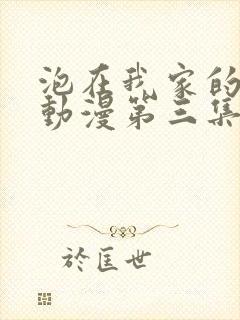 泡在我家的
動漫第三集
於匡世